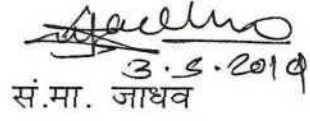 3.5.2019
सं.मा. जाधव